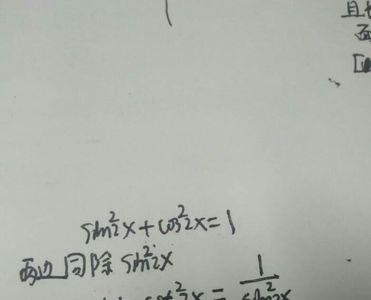 且
sin²2x+cos²2x=1
两边同除 sin²2x
cot²2x = 1/sin²2x